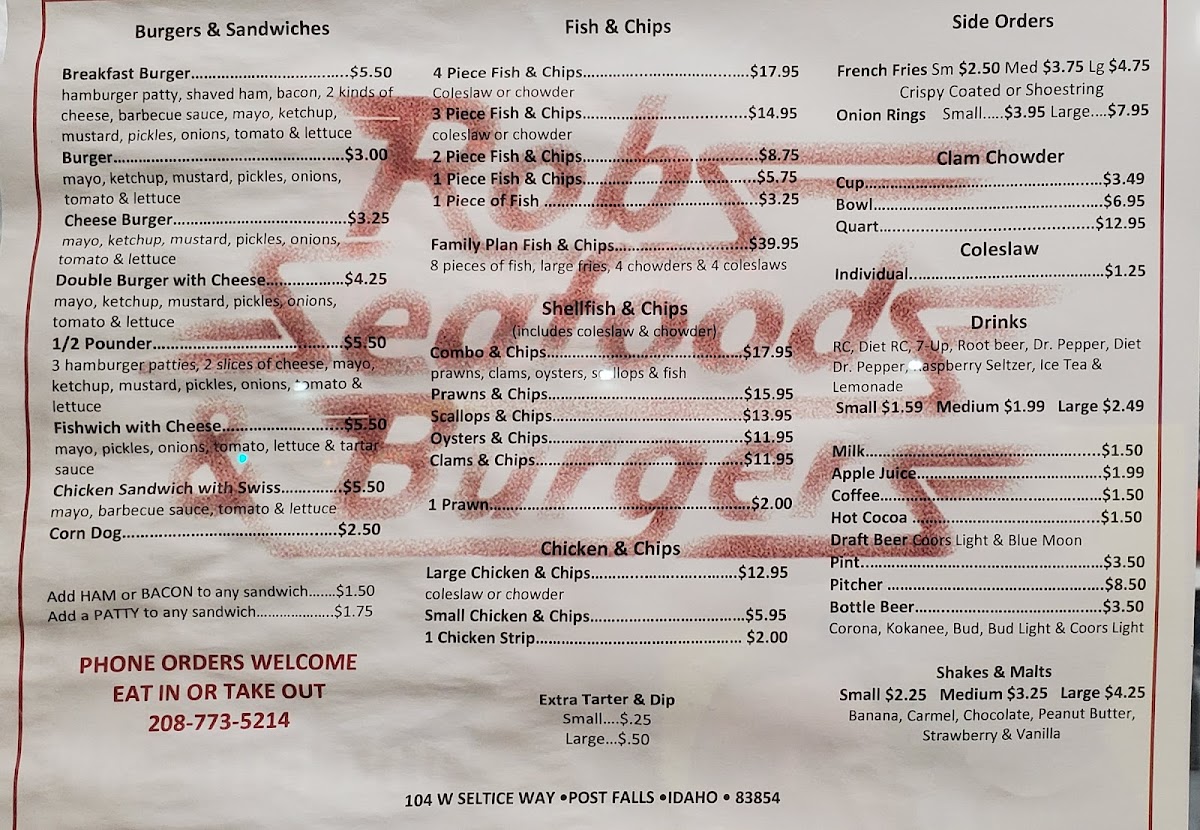 Burgers & Sandwiches
Breakfast Burger.....................................$5.50
hamburger patty, shaved ham, bacon, 2 kinds of
cheese, barbecue sauce, mayo, ketchup,
mustard, pickles, onions, tomato & lettuce
Burger.....................................................$3.00
mayo, ketchup, mustard, pickles, onions,
tomato & lettuce
Cheese Burger........................................$3.25
mayo, ketchup, mustard, pickles, onions,
tomato & lettuce
Double Burger with Cheese..................$4.25
mayo, ketchup, mustard, pickles, onions,
tomato & lettuce
1/2 Pounder............................................$5.50
3 hamburger patties, 2 slices of cheese, mayo,
ketchup, mustard, pickles, onions, tomato &
lettuce
Fishwich with Cheese............................$5.50
mayo, pickles, onions, tomato, lettuce & tartar
sauce
Chicken Sandwich with Swiss..............$5.50
mayo, barbecue sauce, tomato & lettuce
Corn Dog.................................................$2.50
Add HAM or BACON to any sandwich.......$1.50
Add a PATTY to any sandwich..................$1.75
PHONE ORDERS WELCOME
EAT IN OR TAKE OUT
208-773-5214
Fish & Chips
4 Piece Fish & Chips......................................$17.95
Coleslaw or chowder
3 Piece Fish & Chips......................................$14.95
coleslaw or chowder
2 Piece Fish & Chips........................................$8.75
1 Piece Fish & Chips........................................$5.75
1 Piece of Fish ................................................$3.25
Family Plan Fish & Chips..............................$39.95
8 pieces of fish, large fries, 4 chowders & 4 coleslaws
Shellfish & Chips
(includes coleslaw & chowder)
Combo & Chips.............................................$17.95
prawns, clams, oysters, scallops & fish
Prawns & Chips............................................$15.95
Scallops & Chips...........................................$13.95
Oysters & Chips............................................$11.95
Clams & Chips...............................................$11.95
1 Prawn..........................................................$2.00
Chicken & Chips
Large Chicken & Chips.................................$12.95
coleslaw or chowder
Small Chicken & Chips...................................$5.95
1 Chicken Strip............................................... $2.00
Extra Tarter & Dip
Small....$.25
Large...$.50
Side Orders
French Fries Sm $2.50 Med $3.75 Lg $4.75
Crispy Coated or Shoestring
Onion Rings Small.....$3.95 Large....$7.95
Clam Chowder
Cup.......................................................$3.49
Bowl.....................................................$6.95
Quart..................................................$12.95
Coleslaw
Individual............................................$1.25
Drinks
RC, Diet RC, 7-Up, Root beer, Dr. Pepper, Diet
Dr. Pepper, Raspberry Seltzer, Ice Tea &
Lemonade
Small $1.59 Medium $1.99 Large $2.49
Milk......................................................$1.50
Apple Juice..........................................$1.99
Coffee..................................................$1.50
Hot Cocoa ...........................................$1.50
Draft Beer Coors Light & Blue Moon
Pint.......................................................$3.50
Pitcher .................................................$8.50
Bottle Beer..........................................$3.50
Corona, Kokanee, Bud, Bud Light & Coors Light
Shakes & Malts
Small $2.25 Medium $3.25 Large $4.25
Banana, Carmel, Chocolate, Peanut Butter,
Strawberry & Vanilla
Robs
Seafoods
& Burgers
104 W SELTICE WAY •POST FALLS •IDAHO • 83854